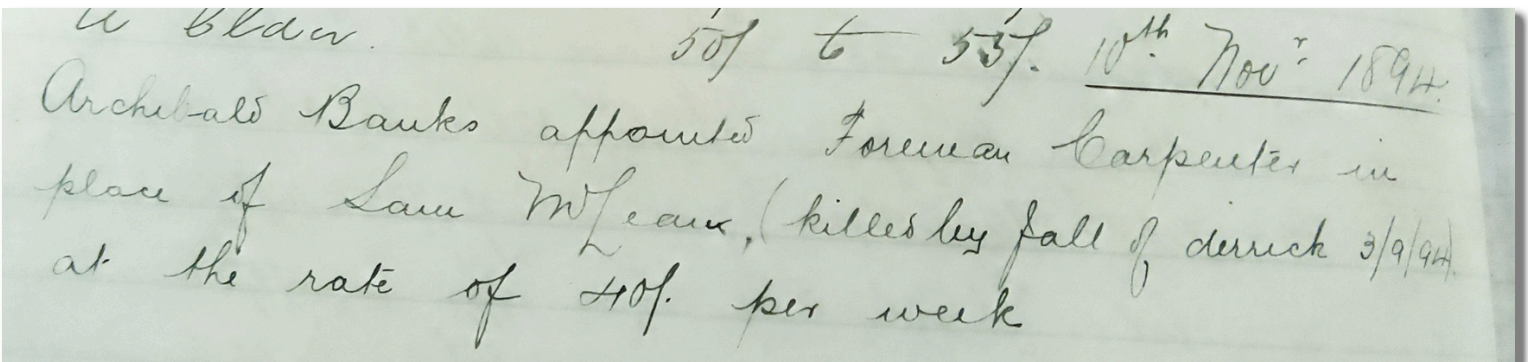 50/ to 55/. 10th. Novr. 1894.
Archibald Banks appointed Foreman Carpenter in
place of Sam McLean, (killed by fall of derrick 3/9/94)
at the rate of 40/. per week